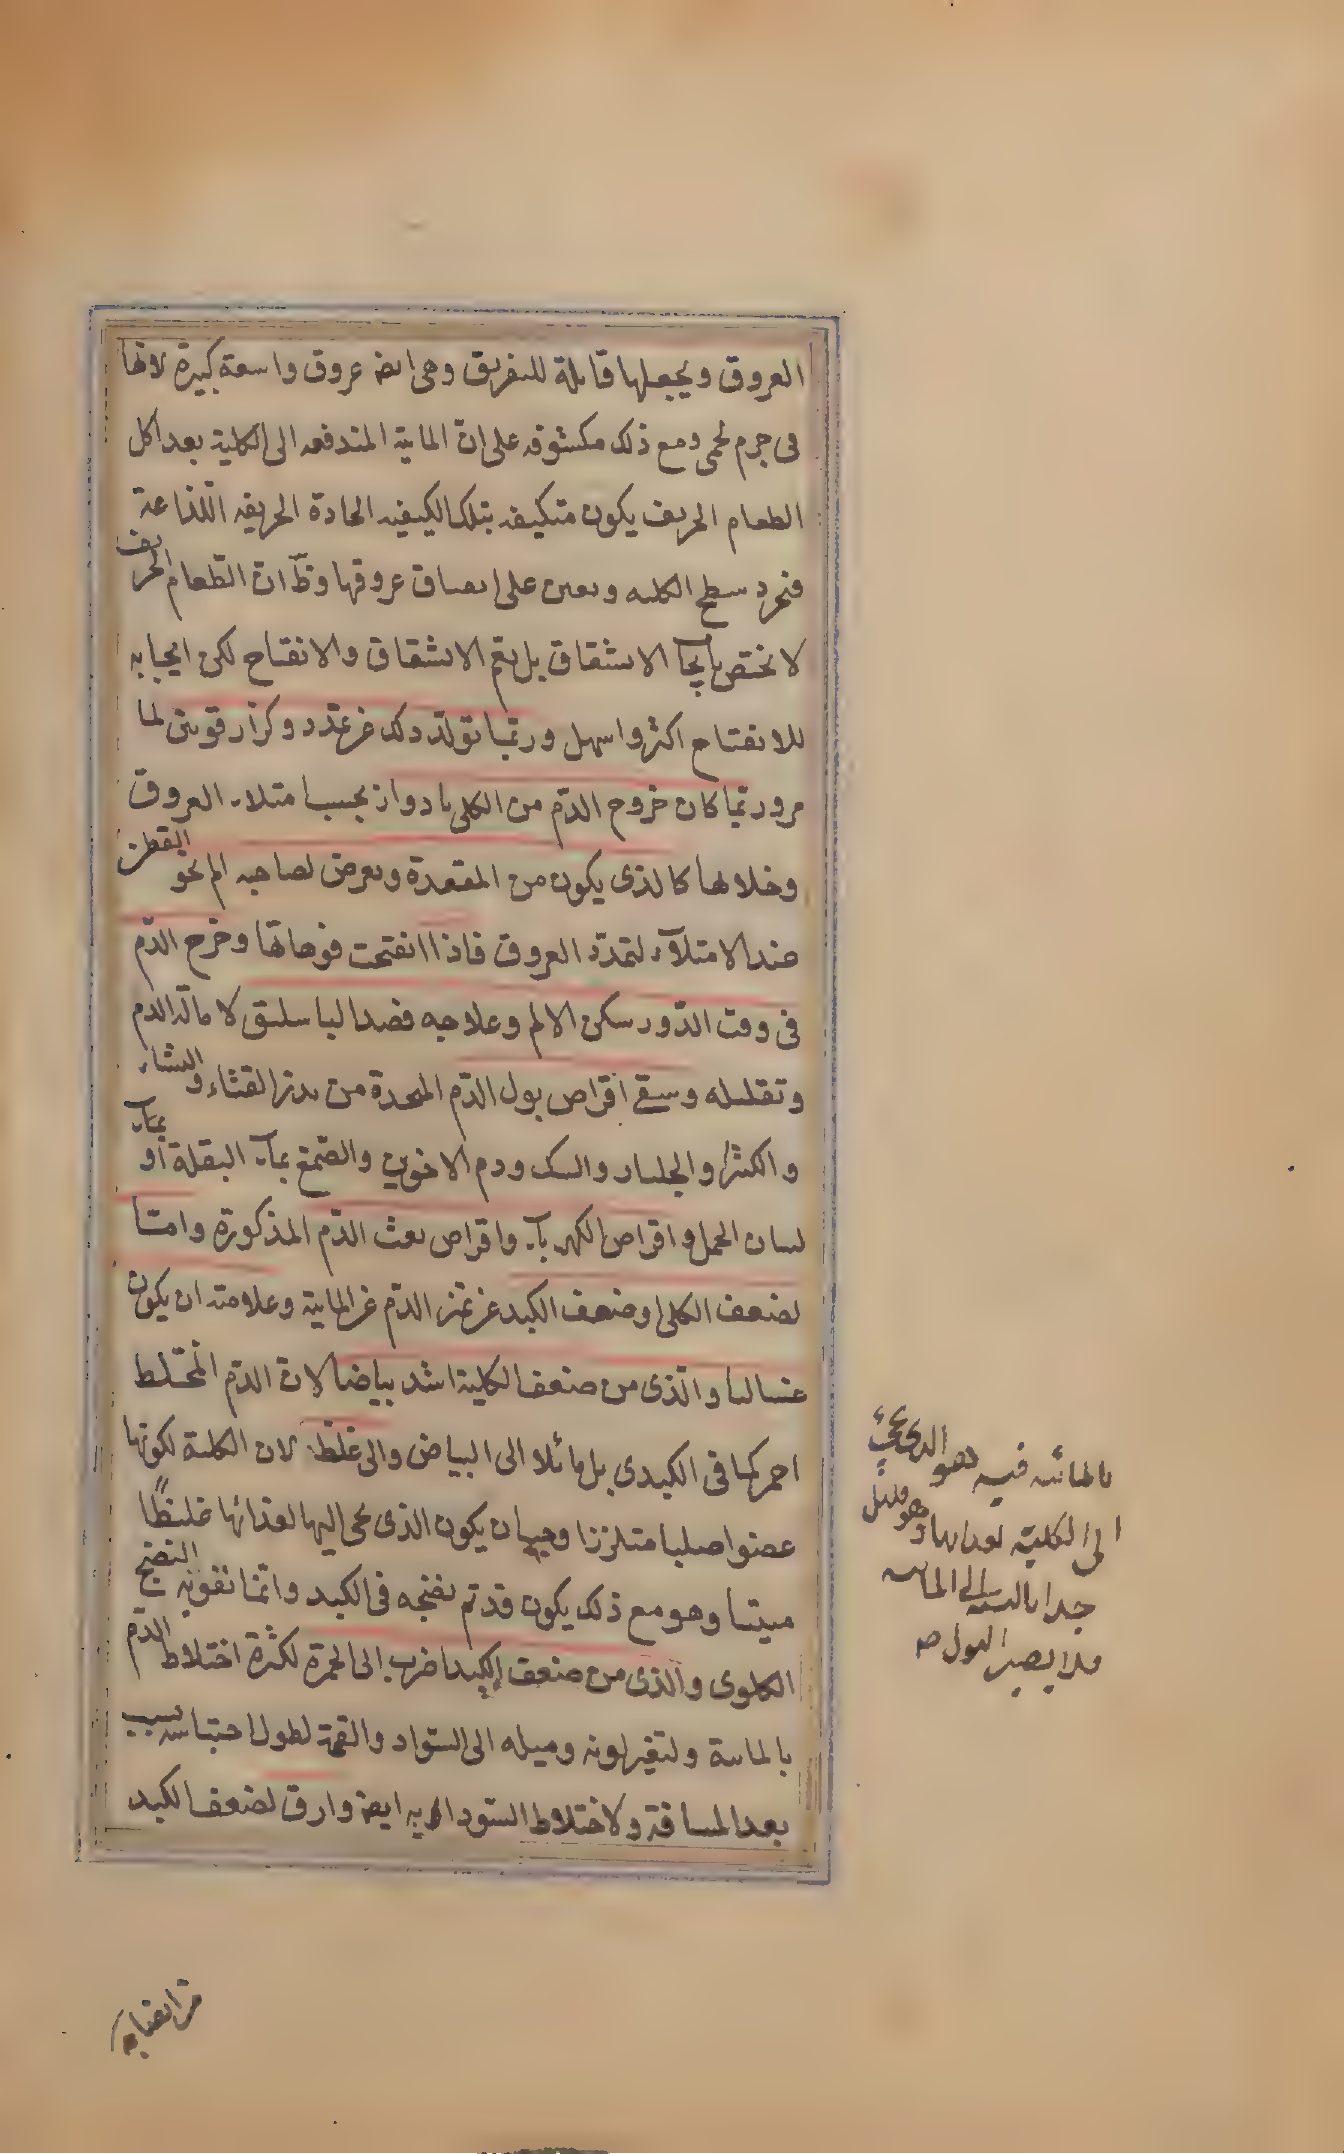 العروق ويجعلها قابلة للتفريق وهى ايضا عروق واسعة كبيرة لانها
فى جرم لحمى ومع ذلك مكشوفه على ان المايية المندفعه الى الكلية بعد اكل
الطعام الحريف يكون متكيفه بتلك الكيفيه الحادة الحريفه اللذاعة
فتجرد سطح الكليه وتعين على انصباق عروقها وظ ان الطعام الحريف
لا تختص بايجاب الانشقاق بل تعم الانشقاق والانفتاح لكن ايجابه
للانفتاح اكثر واسهل وربما تولد ذلك عن تمدد وكزاز قويين لما
مر وربما كان خروج الدم من الكلى بادوار بحسب امتلاء العروق
وخلائها كالذى يكون من المقعدة ويعرض لصاحبه الم نحو القطن
عند الامتلاء لتمدد العروق فاذا انفتحت فوهاتها وخرج الدم
فى وقت الدور سكن الالم وعلاجه فصد الباسليق لامالة الدم
وتقليله وسقى اقراص بول الدم المتخذة من بذر القثاء والنشاء
والكثيرا والجلنار والسك ودم الاخوين والصمغ بماء البقلة او بماء
لسان الحمل واقراص الكهرباء واقراص نفث الدم المذكورة واما
لضعف الكلى او ضعف الكبد عن تميز الدم عن المايية وعلامته ان يكون
غساليا والذى من ضعف الكلية اشد بياضا لان الدم المختلط
بالمائيه فيه وهو الذى يجئ
الى الكلية لغذايها وهو قليل
جدا بالنسبه الى المائيه
فلا يصير البول صح
احمر كما فى الكبدى بل مائلا الى البياض والى غلظ لان الكلية لكونها
عضوا صلبا متلززا وجب ان يكون الذى يجى اليها لغذائها غليظا
ميتا وهو مع ذلك يكون قد تم نضجه فى الكبد وانما تفوته النضج
الكلوى والذى من ضعف الكبد اضرب الى الحمرة لكثرة اختلاط الدم
بالمايية ولتغير لونه وميله الى السواد والقتمة لطول احتباسه بسبب
بعد المسافة ولاختلاط السوداء به ايضا وارق لضعف الكبد